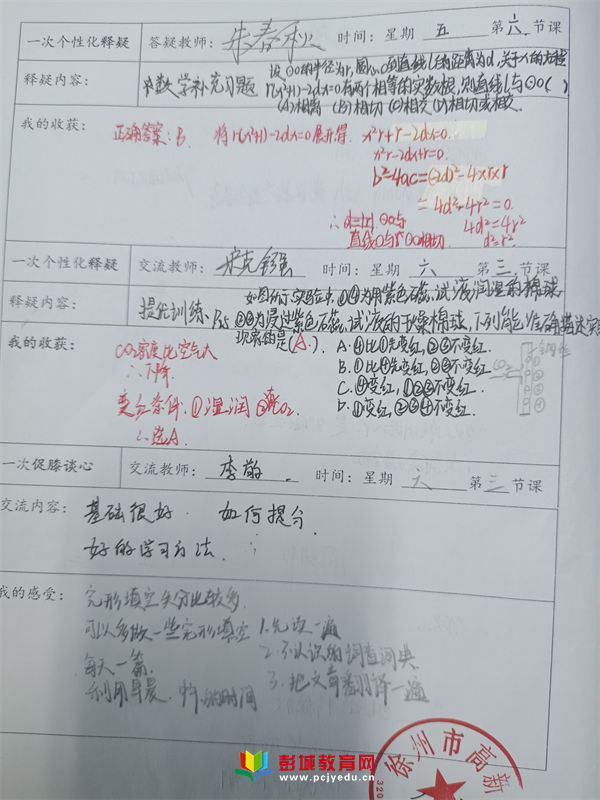 一次个性化释疑 答疑教师：朱春秋 时间：星期 五 第 六 节课
设⊙O的半径为r,圆心O到直线l的距离为d,关于x的方程
释疑内容： 数学补充习题 r(x²+1)-2dx=0有两个相等的实数根,则直线l与⊙O( )
(A)相离 (B)相切 (C)相交 (D)相切或相交
我的收获： 正确答案：B. 将r(x²+1)-2dx=0展开得. x²r+r-2dx=0.
x²r-2dx+r=0.
b²-4ac=(-2d)²-4×r×r
=4d²-4r²=0.
∴d=|r| ⊙O与 4d²=4r²
相切. d²=r².
一次个性化释疑 交流教师： 时间：星期 六 第 三 节课
如图所示实验中,①④为用紫色石蕊试液润湿的棉球
释疑内容： 提优训练 ②③为浸过紫色石蕊试液的干燥棉球,下列能准确描述实
现象的是(A.)
我的收获： CO₂密度比空气大 A.④比①先变红,②③不变红.
∴下降. B.①比④先变红,②③不变红.
变红条件.①湿润 ②有CO₂ C.④变红,①②③不变红.
∴选A D.①变红,②③④不变红.
一次促膝谈心 交流教师： 李敬 时间：星期 六 第 三 节课
交流内容： 基础很好. 如何提分.
好的学习方法.
我的感受： 完形填空失分比较多.
可以多做一些完形填空 1.先读一遍
每天一篇. 2.不认识的词查词典
利用早晨、 时间 3.把文章翻译一遍
徐州市高新
320
彭城教育网
www.pcjyedu.cn